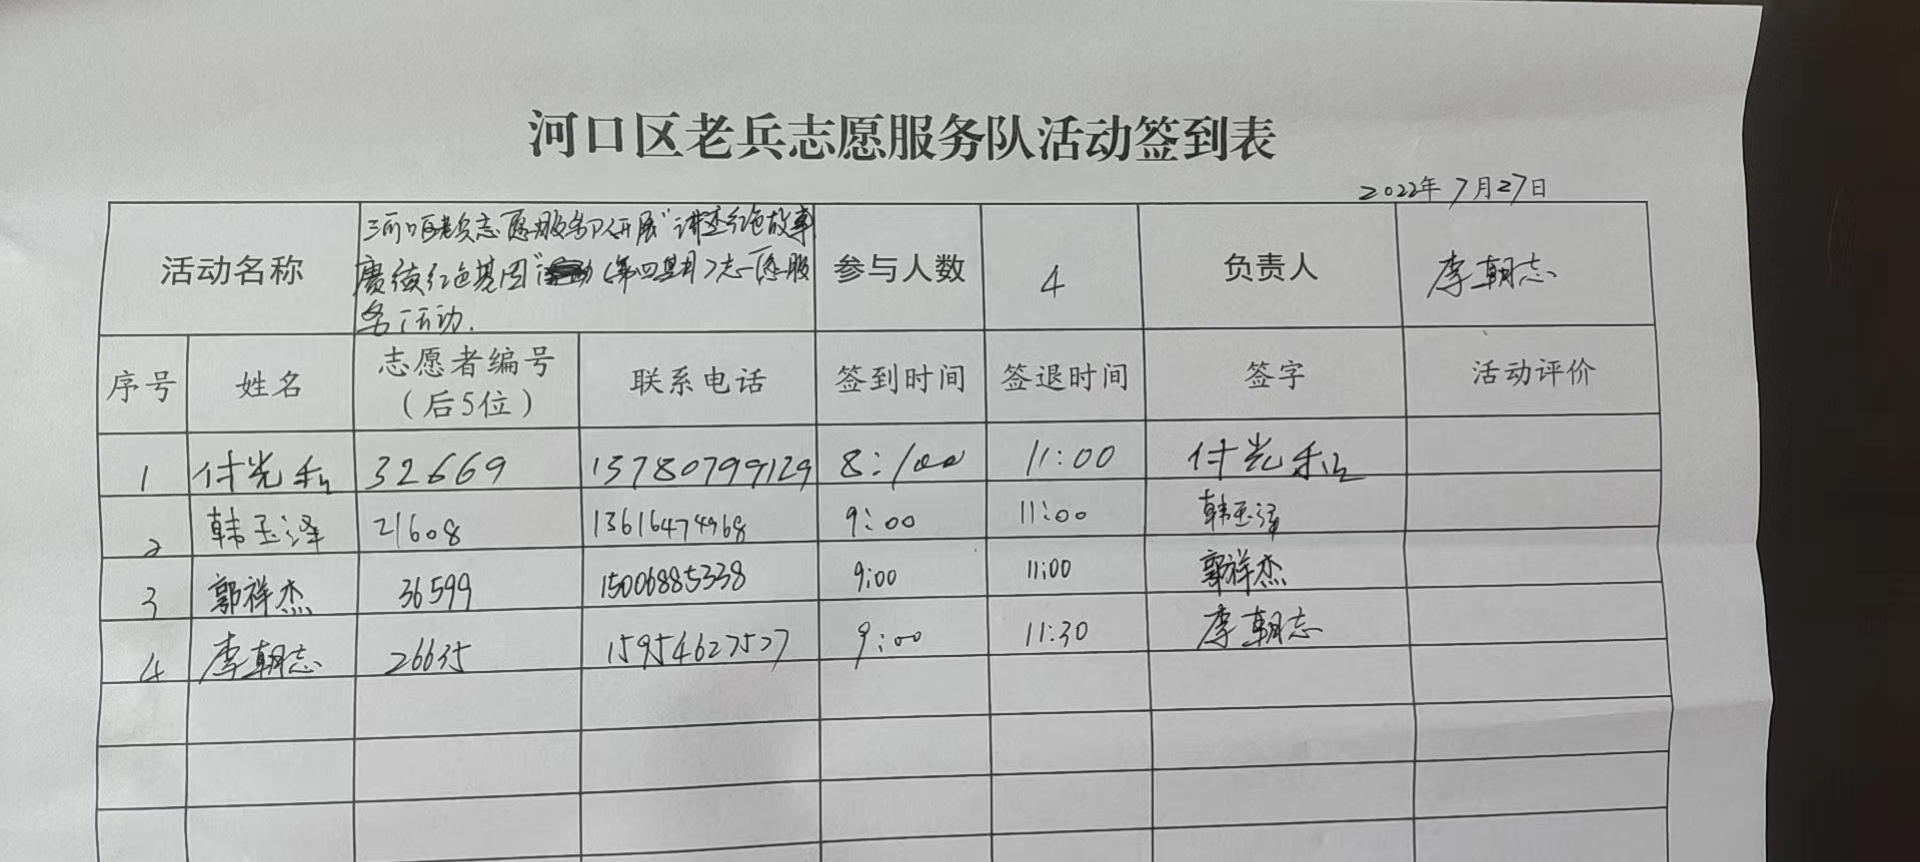 河口区老兵志愿服务队活动签到表
2022年7月27日
活动名称
河口区老兵志愿服务队开展"讲述红色故事
赓续红色基因"(第四期)志愿服
务活动.
参与人数
4
负责人
李朝志
序号
姓名
志愿者编号
(后5位)
联系电话
签到时间
签退时间
签字
活动评价
1 付光和 32669 13780799129 8:00 11:00 付光和
2 韩玉泽 21608 13616474968 9:00 11:00 韩玉泽
3 郭祥杰 36599 15006885338 9:00 11:00 郭祥杰
4 李朝志 26635 15954627527 9:00 11:30 李朝志